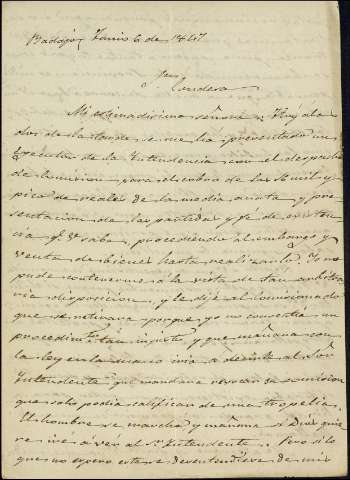 Badajoz Junio 6 de 1847
Mi estimadísima señora: Hoy a las
dos de la tarde se me ha presentado un
Executor de la Intendencia con el despacho
de comision para el cobro de los mil y
pico de reales de la media anata y pre-
sentacion de las partidas y fe de existen-
cia q.e V. sabe, procediendo al embargo y
venta de bienes hasta realizarlo. Yo no
pude contenerme a la vista de tan arbitra-
ria disposicion, y le dije al comisionado
que se retirara porque yo no consentia un
procedimto tan injusto y que mañana con
la ley en la mano iria a decirle al Sor
Intendente que mandara revocar su comision
que solo podia calificar de una tropelia.
El hombre se marchó y mañana si Dios quie
re iré á ver al Sr Intendente. Pero si lo
que no espero este se desentendiese de mis